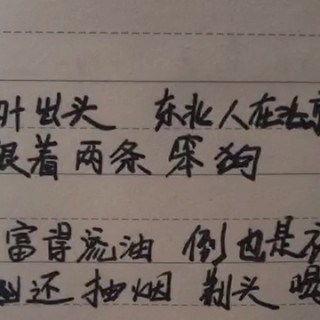 叶出头 东北人在北京
跟着两条笨狗
富得流油 倒也是
还抽烟 剃头 喝